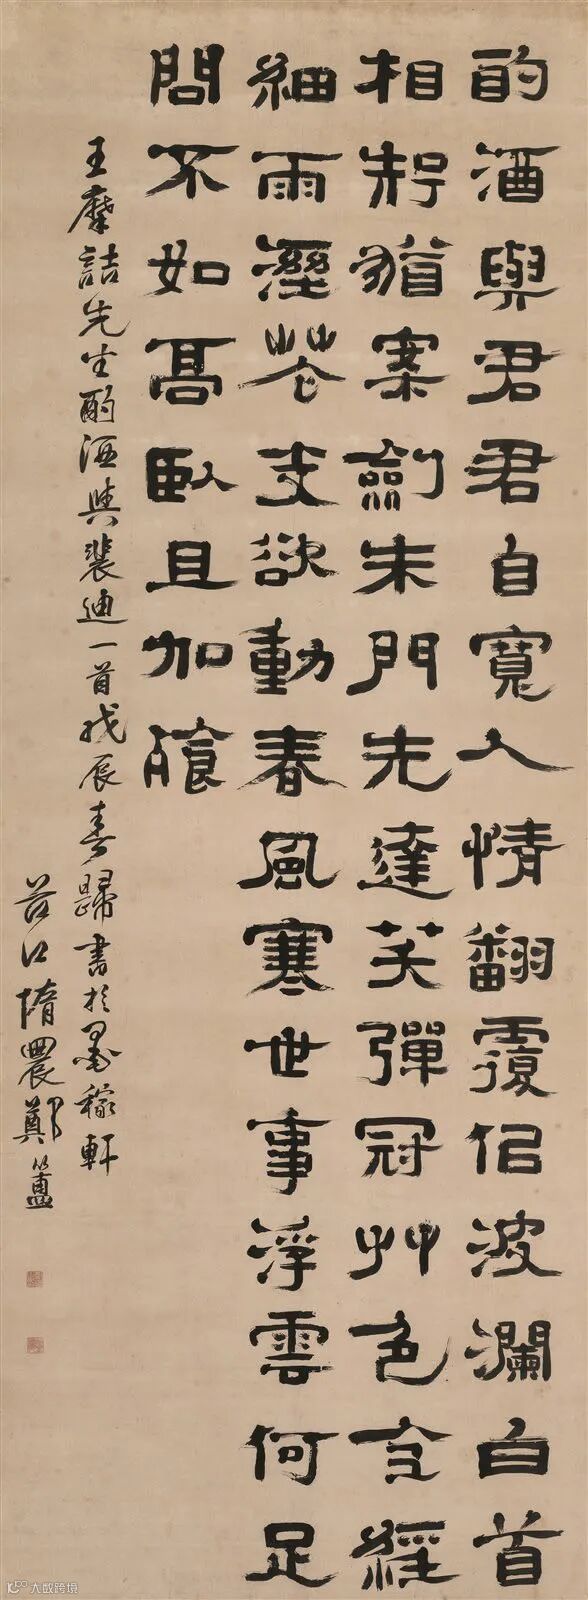 酌酒與君君自寬人情翻覆佀波瀾白首
相知猶案劍朱門先達笑彈冠艸色全經
細雨溼花支欲動春風寒世事浮雲何足
問不如高臥且加飡
王摩詰先生酌酒與裴迪一首戊辰春歸書於墨稼軒
谷口惰農鄭簠
大数跨境